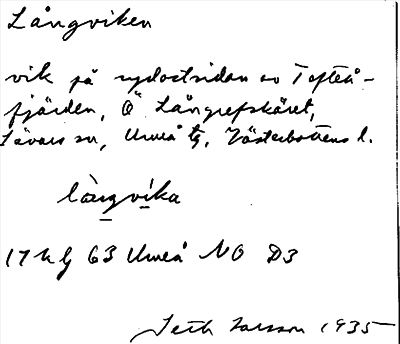 Långviken
vik på sydostsidan av Tofteå-
fjärden, Ö Långrefskäret,
Sävars sn, Umeå tg, Västerbottens l.
làŋgvìka
17 k g 63 Umeå NO D3
Seth Larsson 1935